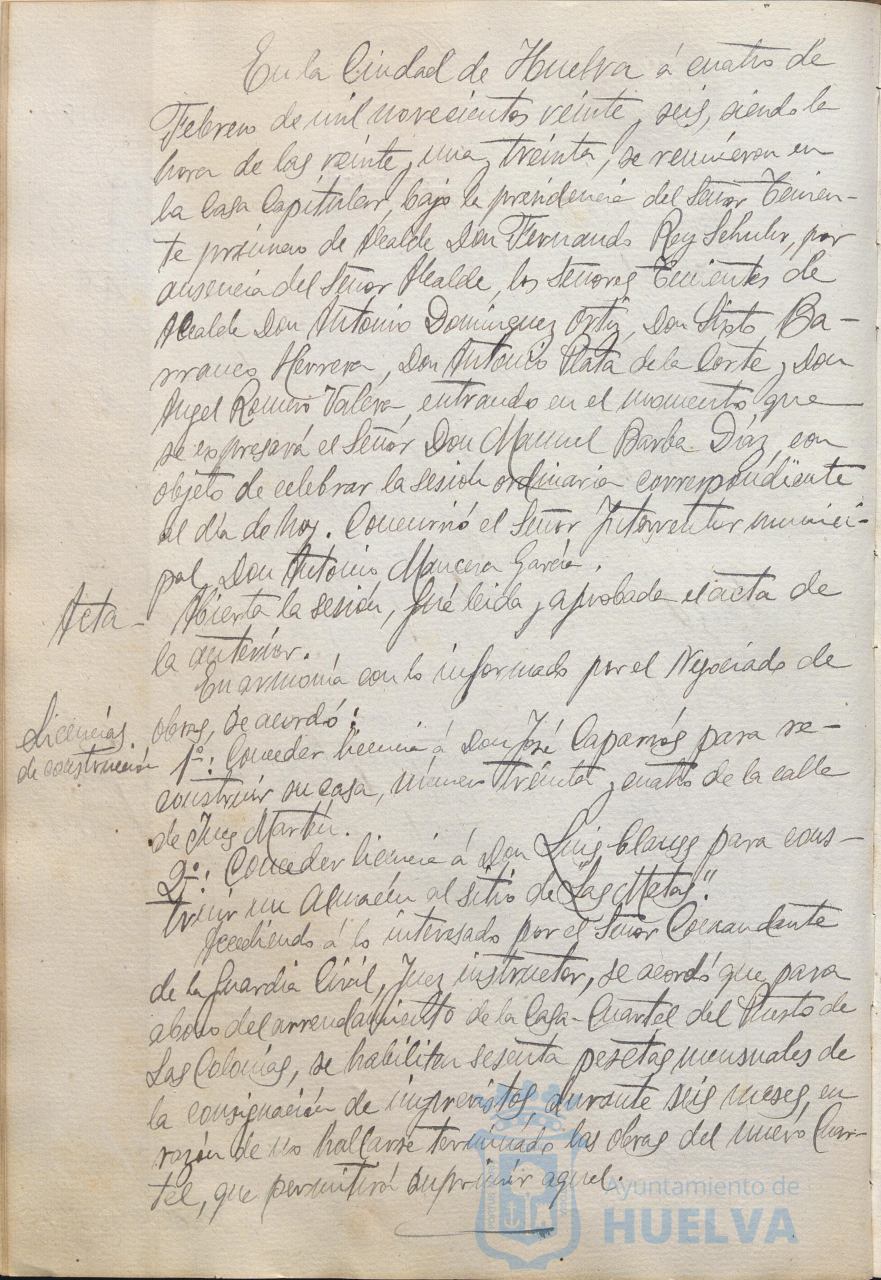 En la Ciudad de Huelva á cuatro de
Febrero de mil novecientos veinte y seis, siendo la
hora de las veinte y una y treinta, se reunieron en
la Casa Capitular, bajo la presidencia del Señor Tenien-
te primero de Alcalde Don Fernando Rey Schuhr, por
ausencia del Señor Alcalde, los Señores Tenientes de
Alcalde Don Antonio Dominguez Ortiz, Don Sixto Ba-
rranco Herrera, Don Antonio Plata de la Corte y Don
Angel Romero Valera, entrando en el momento que
se expresará el Señor Don Manuel Barba Díaz, con
objeto de celebrar la sesión ordinaria correspondiente
al día de hoy. Concurrió el Señor Interventor munici-
pal, Don Antonio Mancera García.
Acta - Abierta la sesión, fué leida y aprobada el acta de
la anterior.
En armonía con lo informado por el Negociado de
obras, se acordó:
Licencias
de construcción
1º: Conceder licencia á Don José Caparrós para re-
construir su casa, número treinta y cuatro de la calle
de Jues Martín.
2º: Conceder licencia á Don Luis Clauss para cons-
truir un Almacén al sitio de "Las Metas".
Accediendo á lo interesado por el Señor Comandante
de la Guardia Civil, Juez instructor, se acordó que para
abono del arrendamiento de la Casa-Cuartel del Puesto de
Las Colonias, se habiliten sesenta pesetas mensuales de
la consignación de imprevistos, durante seis meses, en
razón de no hallarse terminado las obras del nuevo Cuar-
tel, que permitirá suprimir aquel.
Ayuntamiento de
HUELVA